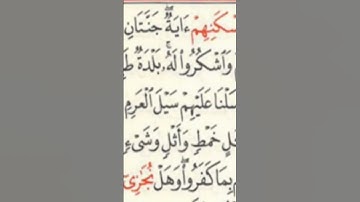 سْكَنِهِمْ ءَايَةٌۖ جَنَّتَانِ
وَٱشْكُرُوا۟ لَهُۥۚ بَلْدَةٌ
سَلْنَا عَلَيْهِمْ سَيْلَ ٱلْعَرِمِ
خَمْطٍ وَأَثْلٍ وَشَىْءٍ
بِمَا كَفَرُوا۟ۖ وَهَلْ نُجَٰزِىٓ